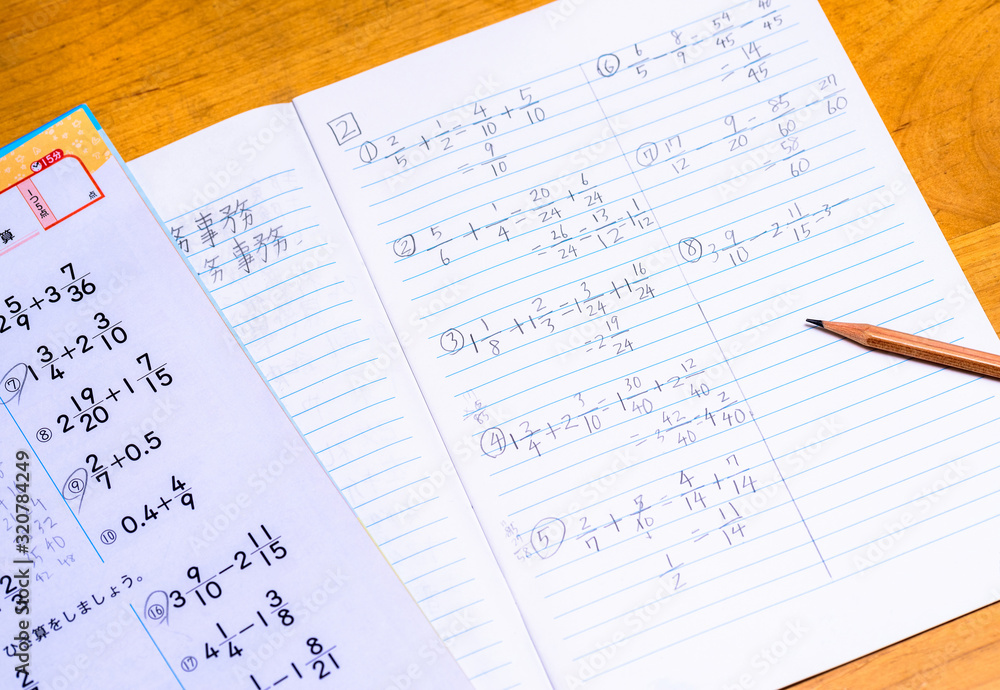 15分
1つ5点
点
算
2 5/9 + 3 7/36
⑦ 1 3/4 + 2 3/10
⑧ 2 19/20 + 1 7/15
⑨ 2/7 + 0.5
⑩ 0.4 + 4/9
ひき算をしましょう。
⑯ 3 9/10 - 2 11/15
⑰ 4 1/4 - 1 3/8
- 1 8/21
務事務
務事務
2
① 2/5 + 1/2 = 4/10 + 5/10
= 9/10
② 5/6 + 1/4 = 20/24 + 6/24
= 26/24 = 13/12 = 1 1/12
③ 1 1/8 + 1 2/3 = 1 3/24 + 1 16/24
= 2 19/24
④ 1 3/4 + 2 3/10 = 1 30/40 + 2 12/40
= 3 42/40 = 4 2/40
⑤ 2/7 + 5/10 = 4/14 + 7/14
= 11/14
1/2
⑥ 6/5 - 8/9 = 54/45 - 40/45
= 14/45
⑦ 17/12 - 9/20 = 85/60 - 27/60
= 58/60
⑧ 3 9/10 - 2 11/15 = 3
Adobe Stock | #320784249